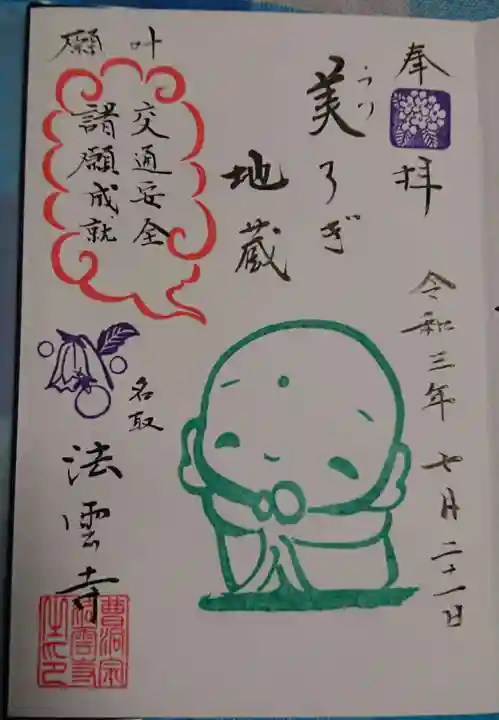 奉拝
令和三年七月二十一日
うつ
美ろぎ
地蔵
叶願
交通安全
諸願成就
名取
法雲寺